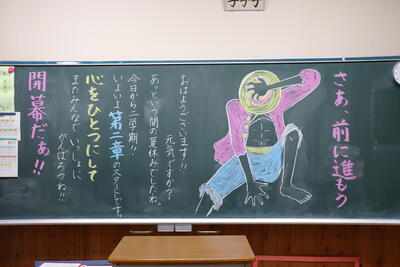 さぁ、前に進もう
おはようございます!!
元気ですか?
あっという間の夏休みでしたね。
今日から二学期!!
いよいよ第二章のスタートです。
心をひとつにして
またみんなでいっしょに
がんばろうね!!
開幕だぁ!!